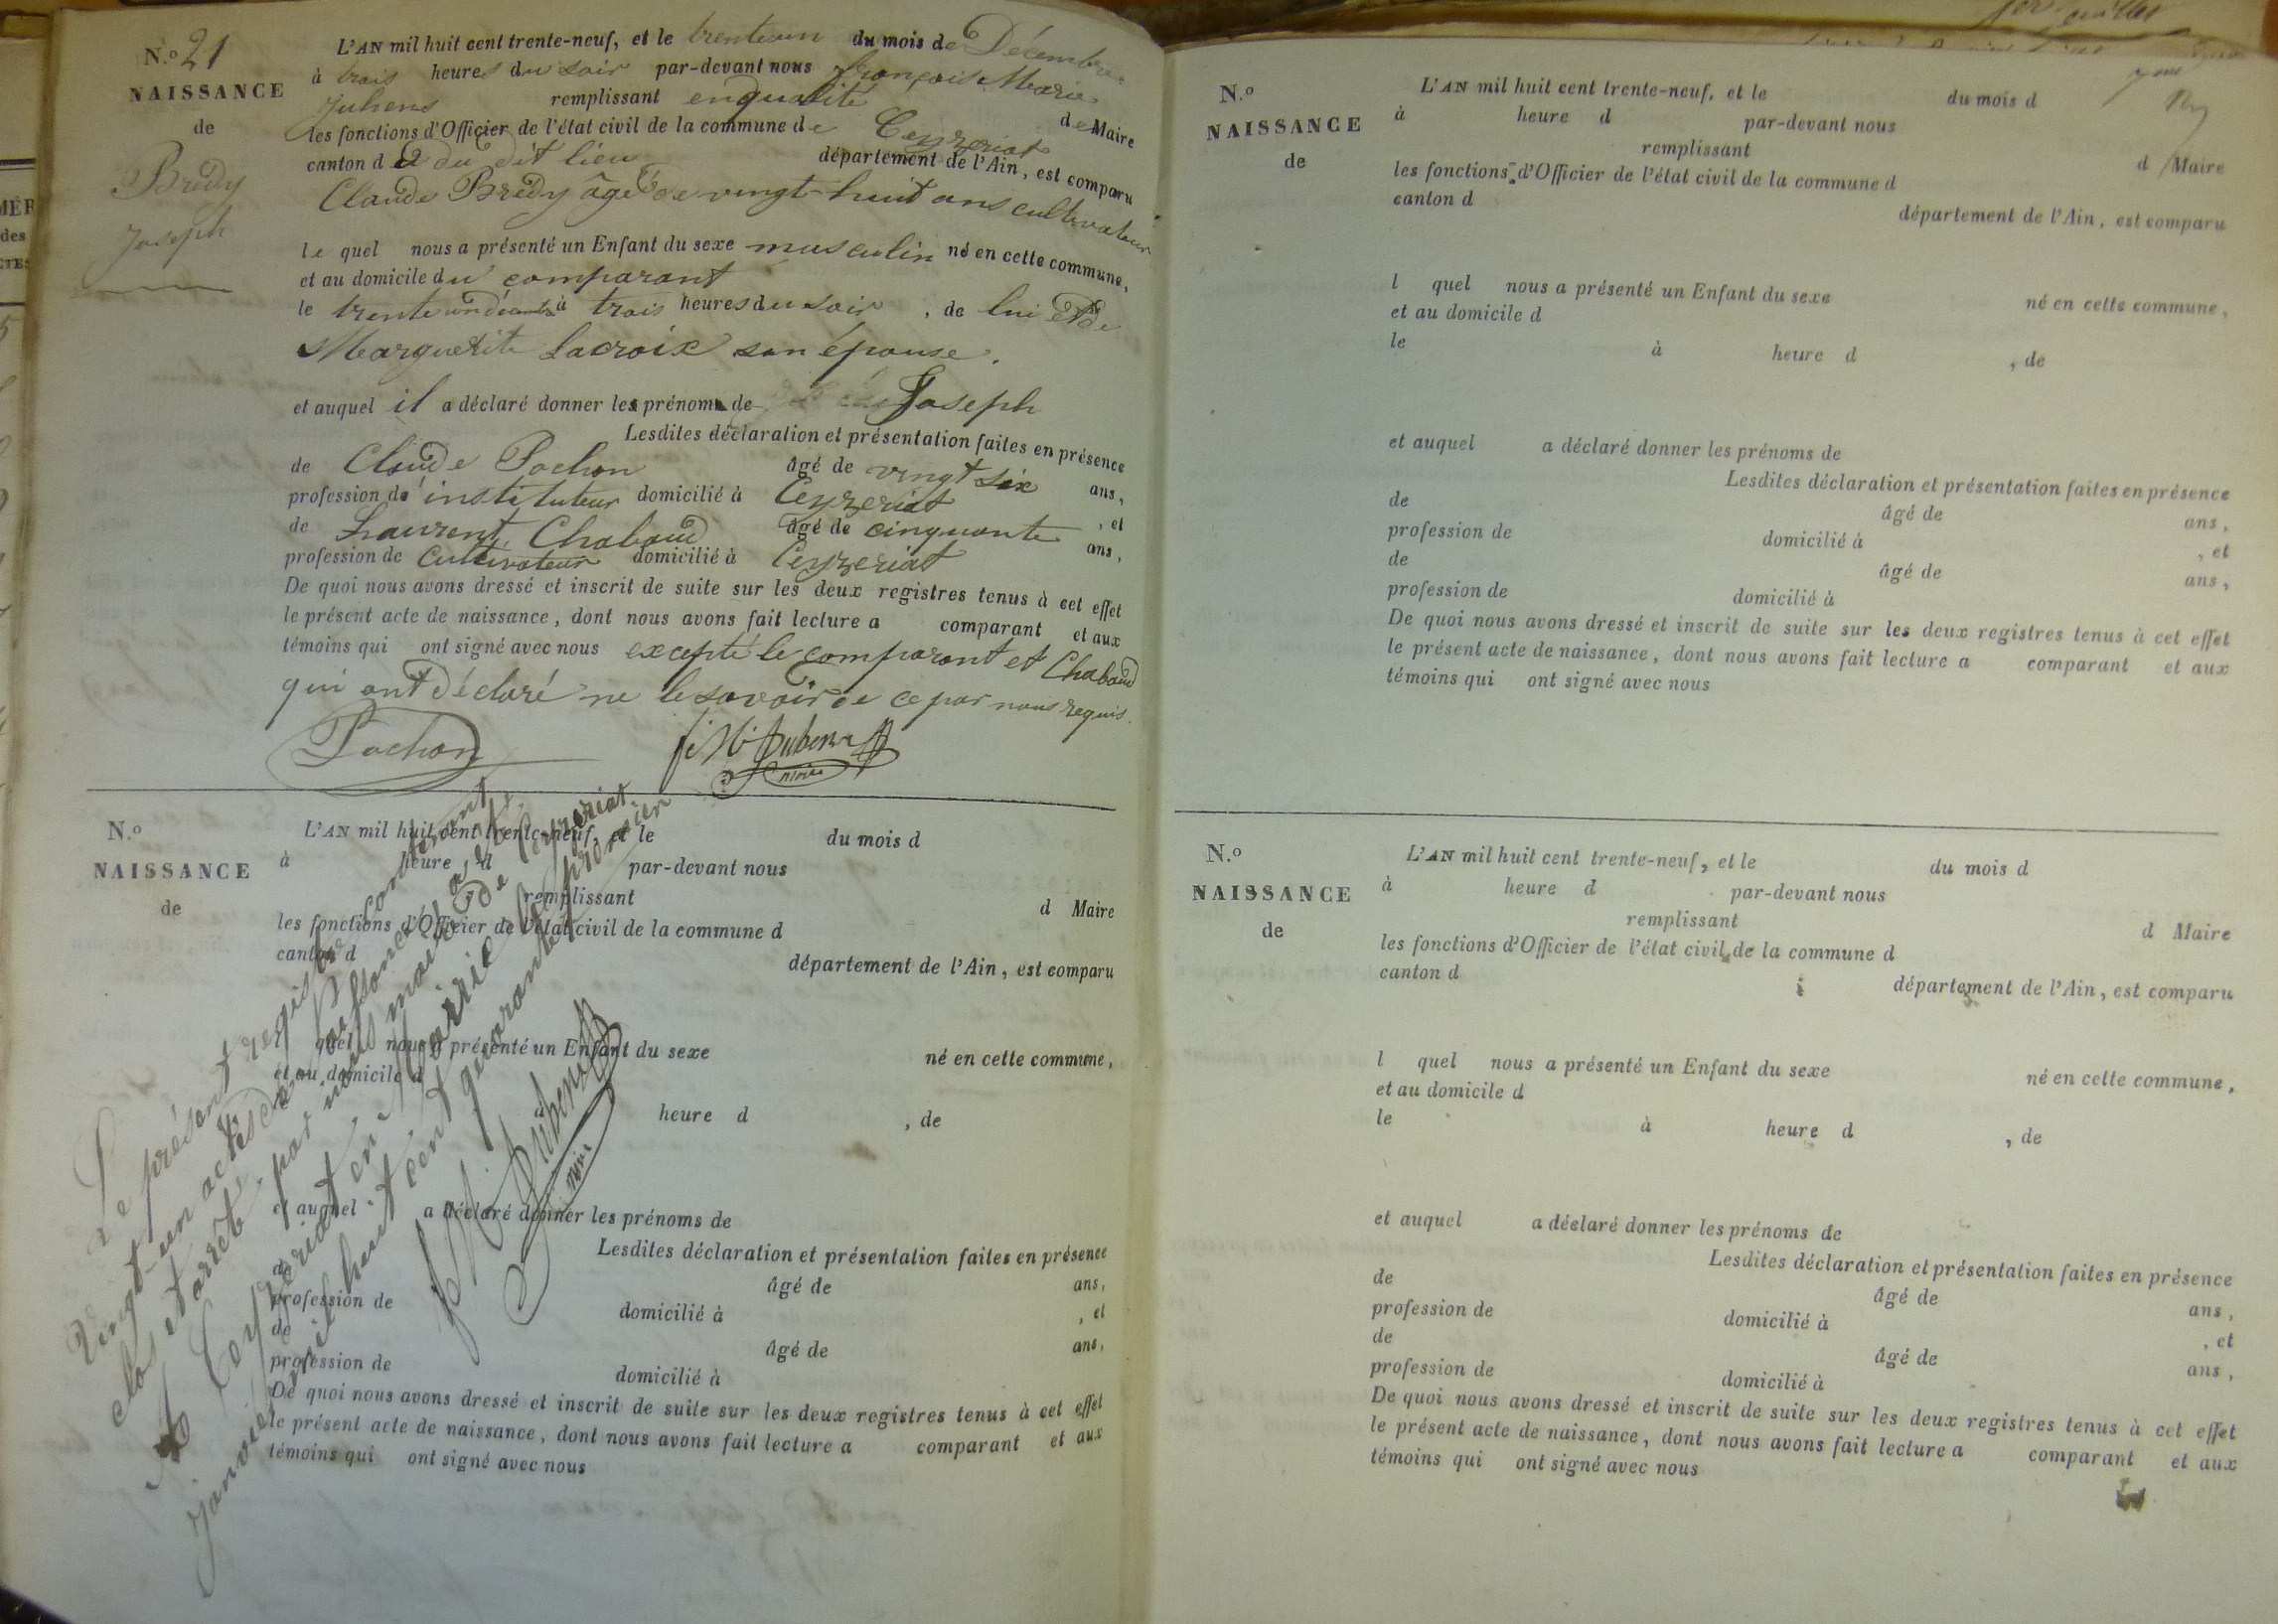 N.o 21
NAISSANCE
de
Brédy
Joseph
L'AN mil huit cent trente-neuf, et le trente un du mois de Décembre
à trois heures du soir par-devant nous françois Marie
remplissant en qualité de Maire
les fonctions d'Officier de l'état civil de la commune de Ceyzeriat
canton d du dit lieu département de l'Ain, est comparu
Claude Brédy âgé de vingt-huit ans cultivateur
le quel nous a présenté un Enfant du sexe masculin né en cette commune,
et au domicile du comparant
le trente un décembre à trois heures du soir, de lui et de
Marguerite Lacroix son épouse.
et auquel il a déclaré donner les prénoms de Joseph
Lesdites déclaration et présentation faites en présence
de Claude Pochon âgé de vingt six ans,
profession de instituteur domicilié à Ceyzeriat, et
de Laurent Chabaud âgé de cinquante ans,
profession de cultivateur domicilié à Ceyzeriat
De quoi nous avons dressé et inscrit de suite sur les deux registres tenus à cet effet
le présent acte de naissance, dont nous avons fait lecture a comparant et aux
témoins qui ont signé avec nous excepté le comparant et Chabaud
qui ont déclaré ne le savoir de ce par nous requis.
Pochon
maire
N.o
NAISSANCE
de
L'AN mil huit cent trente-neuf, et le du mois d
à heure d par-devant nous
remplissant d Maire
les fonctions d'Officier de l'état civil de la commune d
canton d département de l'Ain, est comparu
l quel nous a présenté un Enfant du sexe né en cette commune,
et au domicile d
heure d , de
et auquel a déclaré donner les prénoms de
Lesdites déclaration et présentation faites en présence
de âgé de ans,
profession de domicilié à , et
de âgé de ans,
profession de domicilié à
De quoi nous avons dressé et inscrit de suite sur les deux registres tenus à cet effet
le présent acte de naissance, dont nous avons fait lecture a comparant et aux
témoins qui ont signé avec nous
Le présent registre contenant
vingt-un actes de naissance a été
clos et arrêté par nous maire de Ceyzeriat
A Ceyzeriat en Mairie le premier
janvier mil huit cent quarante
maire
N.o
NAISSANCE
de
L'AN mil huit cent trente-neuf, et le du mois d
à heure d par-devant nous
remplissant d Maire
les fonctions d'Officier de l'état civil de la commune d
canton d département de l'Ain, est comparu
l quel nous a présenté un Enfant du sexe né en cette commune,
et au domicile d
le à heure d , de
et auquel a déclaré donner les prénoms de
Lesdites déclaration et présentation faites en présence
de âgé de ans,
profession de domicilié à , et
de âgé de ans,
profession de domicilié à
De quoi nous avons dressé et inscrit de suite sur les deux registres tenus à cet effet
le présent acte de naissance, dont nous avons fait lecture a comparant et aux
témoins qui ont signé avec nous
N.o
NAISSANCE
de
L'AN mil huit cent trente-neuf, et le du mois d
à heure d par-devant nous
remplissant d Maire
les fonctions d'Officier de l'état civil de la commune d
canton d département de l'Ain, est comparu
l quel nous a présenté un Enfant du sexe né en cette commune,
et au domicile d
le à heure d , de
et auquel a déclaré donner les prénoms de
Lesdites déclaration et présentation faites en présence
de âgé de ans,
profession de domicilié à , et
de âgé de ans,
profession de domicilié à
De quoi nous avons dressé et inscrit de suite sur les deux registres tenus à cet effet
le présent acte de naissance, dont nous avons fait lecture a comparant et aux
témoins qui ont signé avec nous